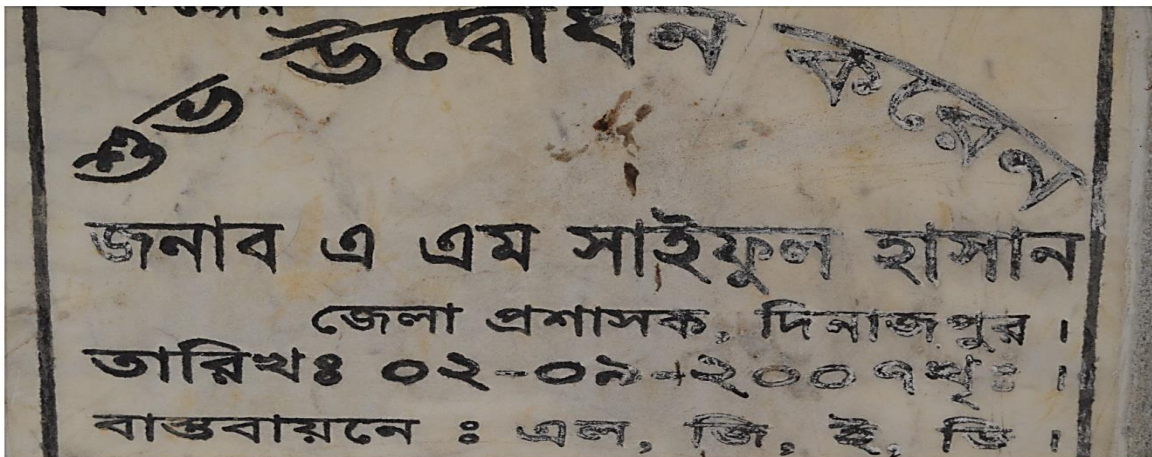 শুভ উদ্বোধন করেন
জনাব এ এম সাইফুল হাসান
জেলা প্রশাসক, দিনাজপুর ।
তারিখঃ ০২-০৯-২০০৭খৃঃ ।
বাস্তবায়নে : এল, জি, ই, ডি ।